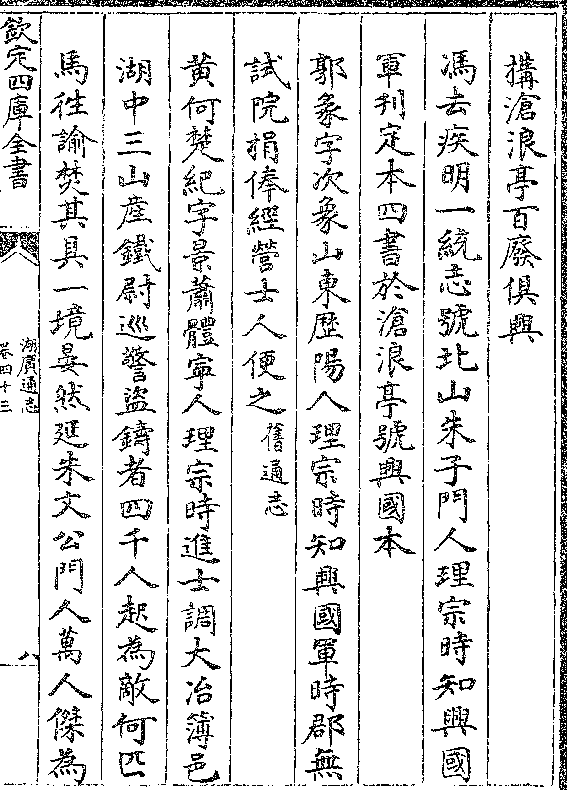 搆滄浪亭百廢俱興
馮去疾明一統志號北山朱子門人理宗時知興國
軍刋定本四書於滄浪亭號興國本
郭象字次象山東歴陽人理宗時知興國軍時郡無
試院捐俸經營士人便之舊通志
黄何楚紀字景蕭體寧人理宗時進士調大冶簿邑
湖中三山産鐵尉巡警盜鑄者四千人起為敵何匹
馬徃諭焚其具一境晏然延朱文公門人萬人傑為
欽定四庫全書
湖廣通志
卷四十三
八